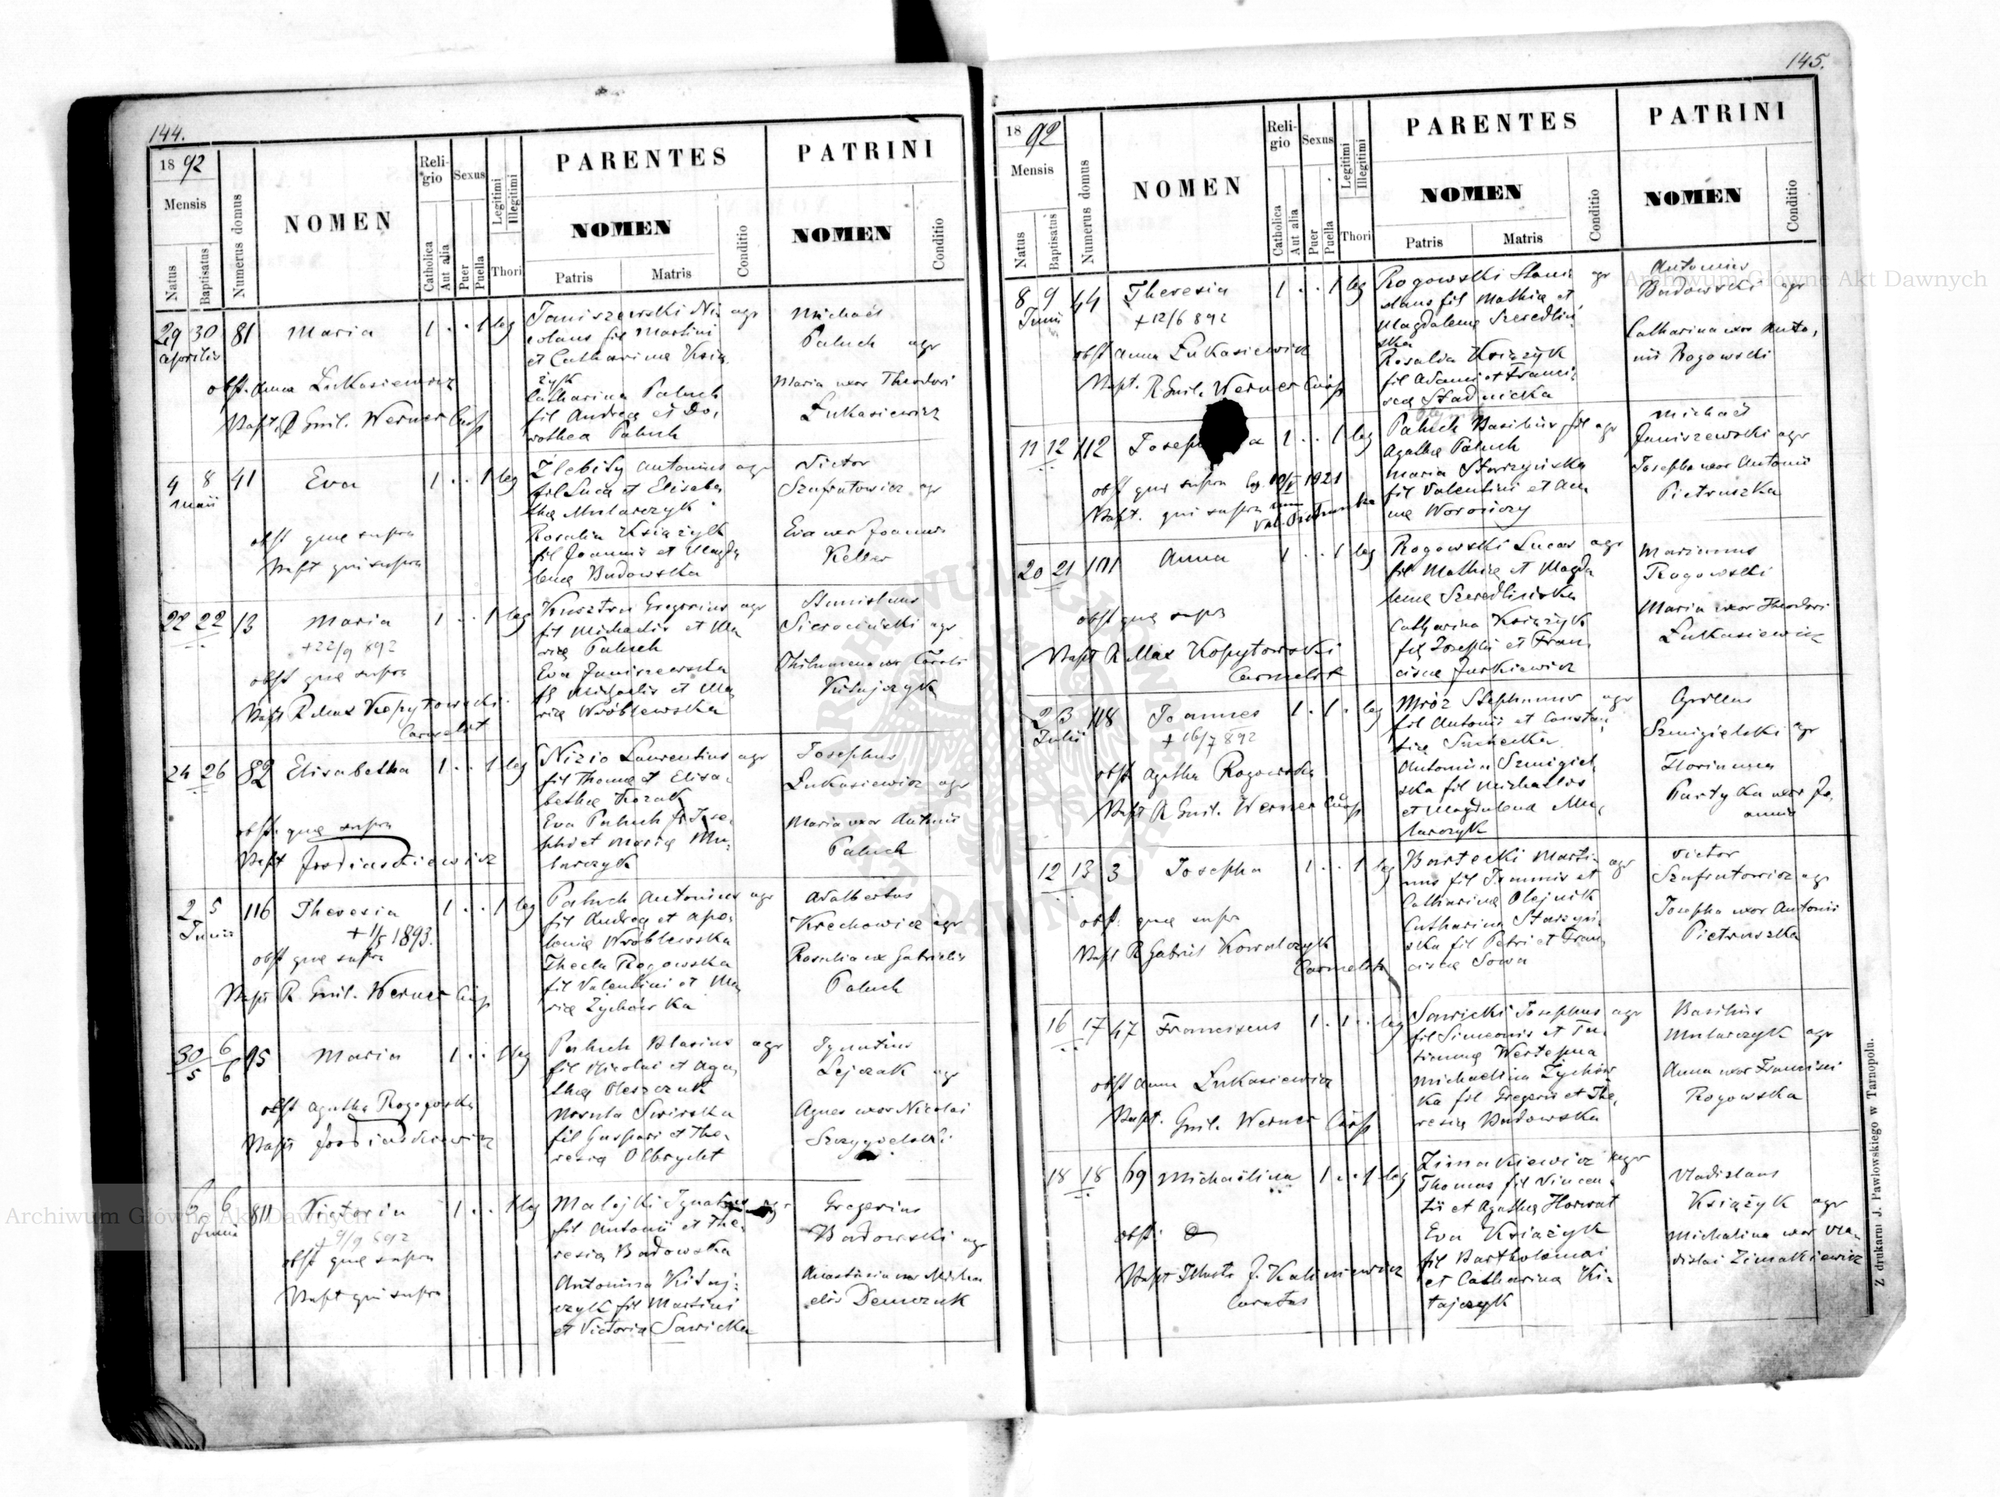 144.
18 92
Mensis
Natus
Baptisatus
Numerus domus
NOMEN
Religio
Catholica
Aut alia
Sexus
Puer
Puella
Legitimi
Illegitimi
Thori
PARENTES
NOMEN
Patris
Matris
Conditio
PATRINI
NOMEN
Conditio
29 30 81 Maria 1 . . 1 leg
Aprilis
obst. Anna Łukasiewicz
Bapt. R Emil. Werner Coop
Janiszewski Ni agr
colaus fil Martini
et Catharina Książ
żyk
Catharina Paluch
fil Andrea et Do-
rothea Paluch
Michael
Paluch agr
Maria uxor Theodori
Łukasiewicz
4 8 41 Eva 1 . . 1 leg
Maii
obst que supra
Bapt qui supra
Antonius agr
fil Luca et Elisabe
tha Mularczyk
Rosalia Książyk
fil Joannis et Magda
lena Budowska
Victor
Szafrutowicz agr
Eva uxor Joannis
Keller
22 22 13 Maria 1 . . 1 leg
+22/9 892
obst que supra
Bapt R Max Kopytowski
Carmelit
Gregorius agr
fil Michaelis et Ma
ria Paluch
Eva Janiszewska
fil Michaelis et Ma
ria Wróblewska
Stanislaus
Sierociński agr
Philumena ux Caroli
Kitajczyk
24 26 82 Elisabetha 1 . . 1 leg
obst. que supra
Bapt
Nizio Laurentius agr
fil Thoma et Elisa-
betha Kozak
Eva Paluch fil Jose-
phi et Maria Mu-
larczyk
Josephus
Łukasiewicz agr
Maria uxor Antonii
Paluch
2 5 116 Theresia 1 . . 1 leg
Junii
+ 1/5 1893.
obst que supra
Bapt R Emil. Werner Coop
Paluch Antonius agr
fil Andrea et Apo-
lonia Wróblewska
Thecla Rogowska
fil Valentini et Ma
ria Zychówka
Adalbertus
Krechowicz agr
Rosalia ux Gabrielis
Paluch
30/5 6/6 95 Maria 1 . . 1 leg
obst Agatha Rogowska
Bapt
Paluch Blasius agr
fil Nicolai et Aga-
tha Oleszczuk
Ursula Swirska
fil Gaspari et The-
resia Olbrycht
Ignatius
Lejczak agr
Agnes uxor Nicolai
Szczygielski
6 6 811 Victoria 1 . . 1 leg
Junii
+ 9/9 892
obst que supra
Bapt qui supra
Malejki Ignatius agr
fil Antonii et The-
resia Badowska
Antonina Kitaj-
czyk fil Martini
et Victoria Sawicka
Gregorius
Badowski agr
Anastasia uxor Micha
elis Demczuk
145.
18 92
Mensis
Natus
Baptisatus
Numerus domus
NOMEN
Religio
Catholica
Aut alia
Sexus
Puer
Puella
Legitimi
Illegitimi
Thori
PARENTES
NOMEN
Patris
Matris
Conditio
PATRINI
NOMEN
Conditio
8 9 44 Theresia 1 . . 1 leg
Junii
+12/6 892
obst Anna Łukasiewicz
Bapt. R Emil. Werner Coop
Rogowski Stani agr
slaus fil Mathia et
Magdalena Szeredliń
ska
Rosalia Książyk
fil Adami et Franci-
sca Stadnicka
Antonius
Badowski agr
Catharina uxor Anto-
nii Rogowski
11 12 112 1 . . 1 leg
obst que supra
Bapt. qui supra
Paluch Basilius fil agr
Agatha Paluch
Maria Starzyńska
fil Valentini et An
na Worończy
Michael
Janiszewski agr
Josepha uxor Antonii
Pietruszka
20 21 101 Anna 1 . . 1 leg
obst que supra
Bapt R Max Kopytowski
Carmelit
Rogowski Lucas agr
fil Mathia et Magda
lena Szeredlińska
Catharina Książyk
fil Josephi et Fran
cisca Jurkiewicz
Marianus
Rogowski
Maria uxor Theodori
Łukasiewicz
2 3 118 Joannes 1 . 1 . leg
Julii
+ 16/7 892
obst Agatha Rogowska
Bapt R Emil. Werner Coop
Mróz Stephanus agr
fil Antonii et Constan-
tia Suchecka
Antonina Szmigiel
ska fil Michaelis
et Magdalena Mu-
larczyk
Cyrillus
Szmigielski agr
Florianna
Partyka uxor Jo-
annis
12 13 3 Josepha 1 . . 1 leg
obst. que supra
Bapt R Gabriel Kowalczyk
Carmelit
Bartecki Marti- agr
nus fil Joannis et
Catharina Olejnik
Catharina Starzyń-
ska fil Petri et Fran
cisca Sowa
Victor
Szafrutowicz agr
Josepha uxor Antonii
Pietruszka
16 17 47 Franciscus 1 . 1 . leg
obst Anna Łukasiewicz
Bapt. Emil. Werner Coop
Sawicki Josephus agr
fil Simeonis et Ta-
tianna Wertepna
Michaelina Zychów
ka fil Gregorii et The-
resia Badowska
Basilius
Mularczyk agr
Anna uxor Francisci
Rogowska
18 18 69 Michaëlina 1 . . 1 leg
obst.
Bapt J. Kaliniewicz
Curatus
Zimakiewicz agr
Thomas fil Vincen-
tii et Agatha Horwat
Eva Książyk
fil Bartholomai
et Catharina Ki-
tajczyk
Vladislaus
Książyk agr
Michalina uxor Vla-
dislai Zimakiewicz
Z drukarni J. Pawłowskiego w Tarnopolu.
Archiwum Główne Akt Dawnych
Archiwum Główne Akt Dawnych